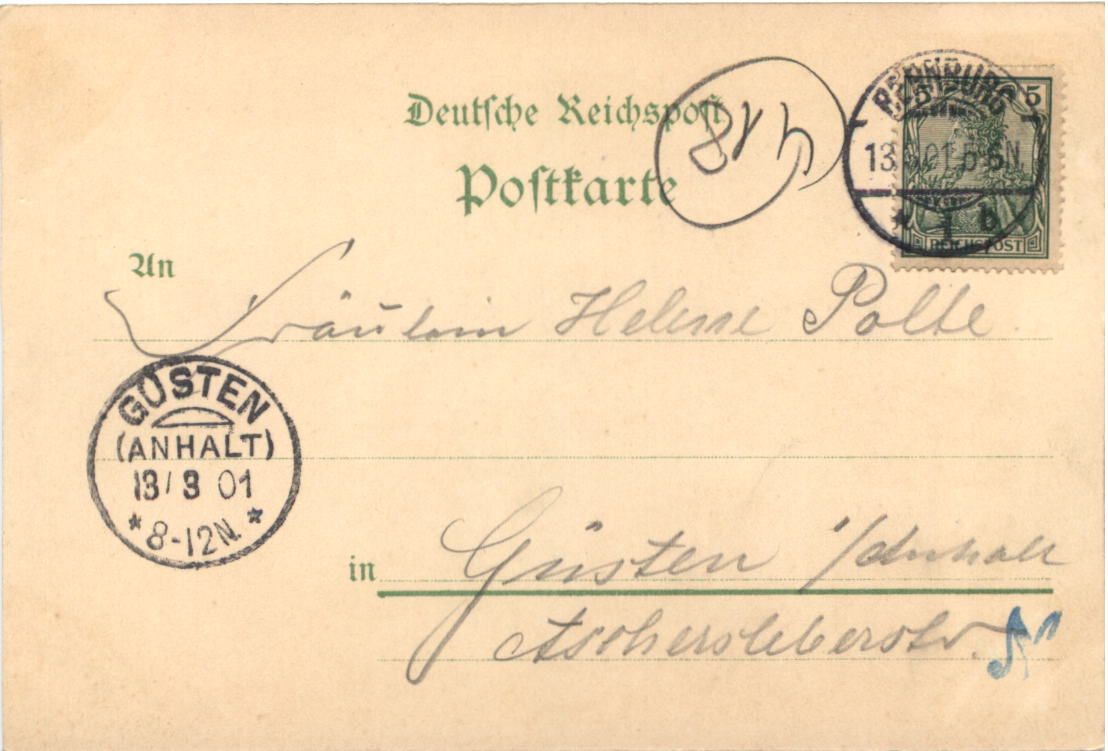 Deutsche Reichspost
Postkarte
BERNBURG
5 5
13. .01.5-6N.
* 1 b
REICHSPOST
An
Fräulein Helene Polte.
GÜSTEN
(ANHALT)
13/3 01
*8-12N.*
in Güsten i/Anhalt
Aschersleberstr.